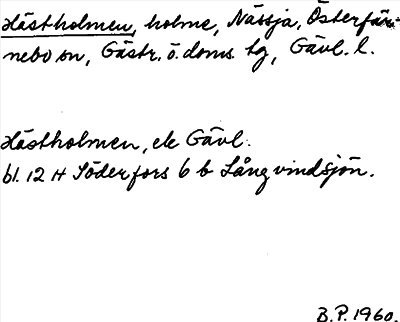 Hästholmen, holme, Nässja, Österfär-
nebo sn, Gästr. ö. doms. tg, Gävl. l.
Hästholmen, ek Gävl.
bl. 12 H Söderfors 6 b Långvindsjön.
B.P. 1960.